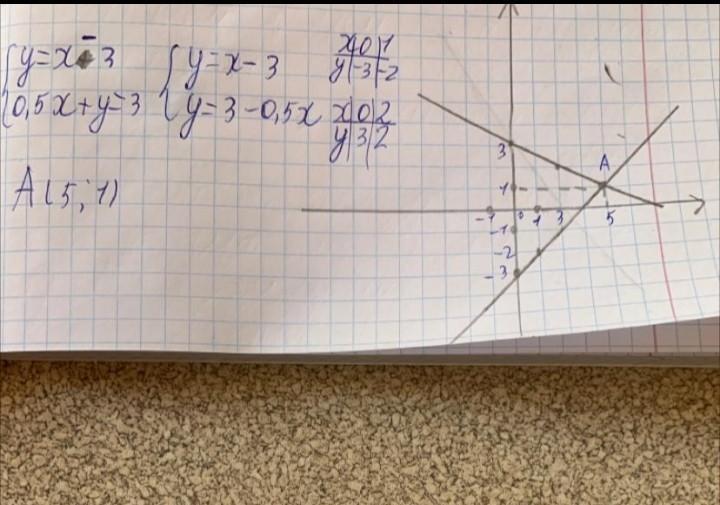 { y = x - 3
0,5x + y = 3
{ y = x - 3
y = 3 - 0,5x
x | 0 | 1
y | -3 | -2
x | 0 | 2
y | 3 | 2
A (5; 1)
A
3
1
-1 0 1 3 5
-1
-2
-3